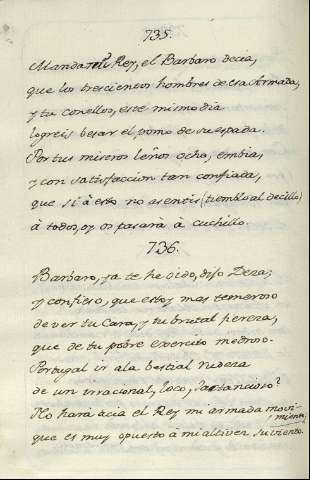 735.
Manda mi Rey, el Barbaro decia,
que los trescientos hombres de esa Armada,
y tu con ellos, este mismo dia
logreis besar el pomo de su espada.
Por tus miseros leños ocho, embia,
y con satisfaccion tan confiada,
que si â esto no asentis (tiemblo al decillo)
â todos, oy os pasarà â cuchillo.
736.
Barbaro, ya te he oido, dijo Zeza;
y confieso, que estoy mas temeroso
de ver tu Cara, y tu brutal fereza,
que de tu pobre exercito medroso.
Portugal ir a la bestial rudeza
de un irracional, loco, jactancioso?
No harà acia el Rey mi armada movimiento,
que es muy opuesto â mi altivez su viento.